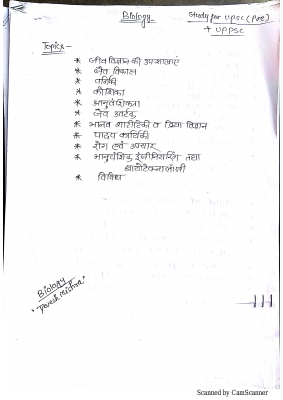 Biology
Study for UPSC (Pre)
+ UPPSC
Topics —
* जीव विज्ञान की उपशाखाएं
* जैव विकास
* वर्गिकी
* कोशिका
* आनुवंशिकता
* जैव उर्वरक
* मानव शारीरिकी व क्रिया विज्ञान
* पादप कार्यिकी
* रोग एवं उपचार
* आनुवंशिक इंजीनियरिंग तथा
बायोटेक्नोलॉजी
* विविध
Biology
Devesh Mishra
Scanned by CamScanner